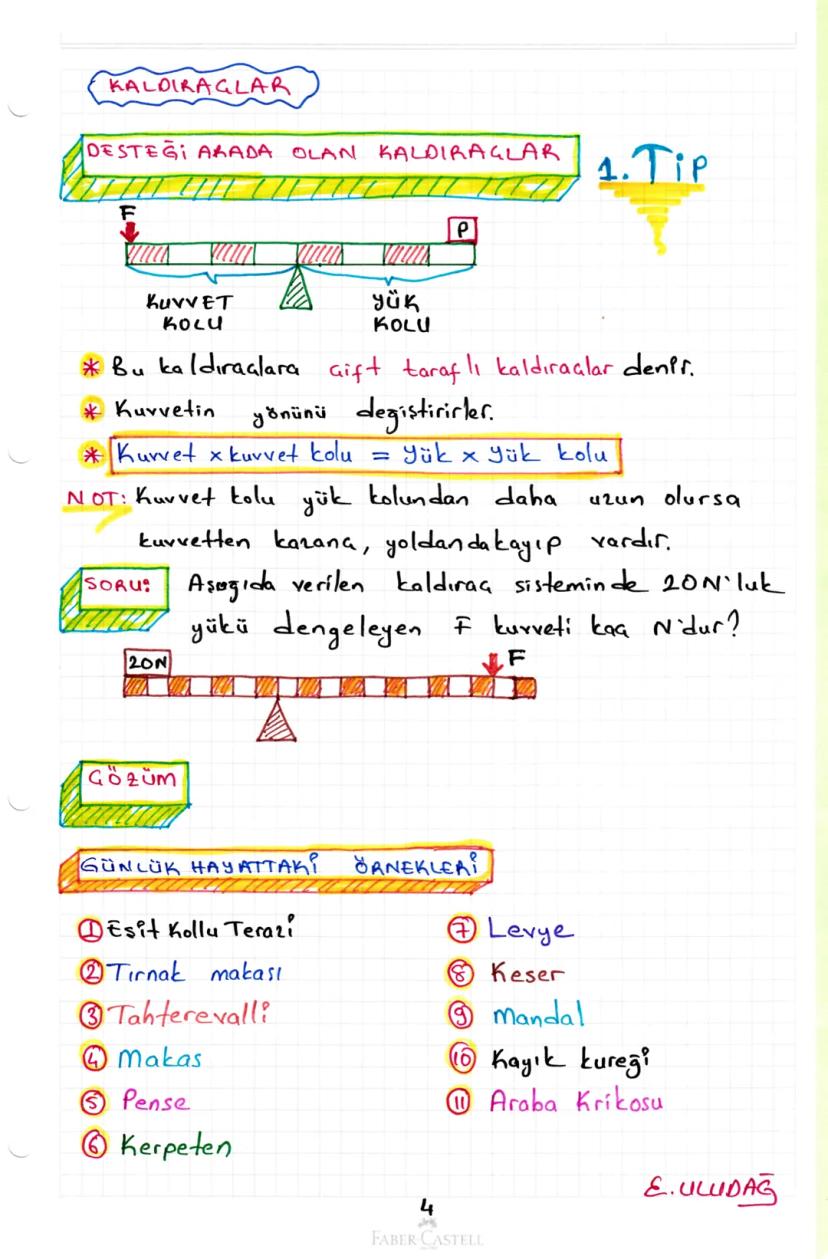 KALDIRAÇLAR
DESTEĞİ ARADA OLAN KALDIRAÇLAR
1. Tip
F
P
KUVVET KOLU
YÜK KOLU
* Bu kaldıraçlara çift taraflı kaldıraçlar denir.
* Kuvvetin yönünü değiştirirler.
* Kuvvet x kuvvet kolu = Yük x Yük kolu
NOT: Kuvvet kolu yük kolundan daha uzun olursa
kuvvetten kazanç, yoldanda kayıp vardır.
SORU: Aşağıda verilen kaldıraç sisteminde 20N'luk
yükü dengeleyen F kuvveti kaç N'dur?
20N
F
ÇÖZÜM
GÜNLÜK HAYATTAKİ ÖRNEKLERİ
1 Eşit Kollu Terazi
2 Tırnak makası
3 Tahterevalli
4 Makas
5 Pense
6 Kerpeten
7 Levye
8 Keser
9 Mandal
10 Kayık küreği
11 Araba Krikosu
E. ULUDAĞ
4
FABER-CASTELL